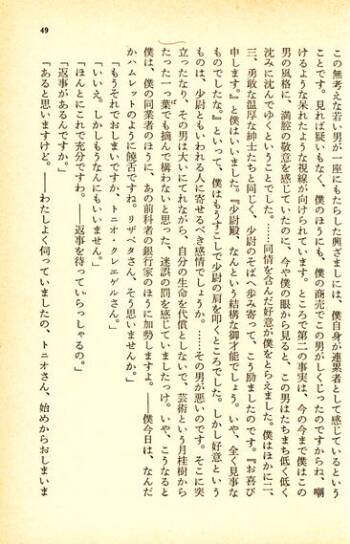 49
この無考えな若い男が一座にもたらした興ざましには、僕自身が連累者として感じているという
ことです。見れば疑いもなく、僕のほうにも、僕の商売でこの男がしくじったのですからね、嘲
けるような呆れたような視線が向けられています。ところで第二の事実は、今の今まで僕はこの
男の風格に、満腔の敬意を感じていたのに、今や僕の眼から見ると、この男はたちまち低く低く
沈みに沈んでゆくということでした。……同情を含んだ好意が僕をとらえました。僕はほかに二、
三、勇敢な温厚な紳士たちと同じく、少尉のそばへ歩み寄って、こう励ましたのです。『お喜び
申します』と僕はいいました。『少尉殿、なんという結構な御才能でしょう。いや、全く見事な
ものでしたな。』といって、僕はもうすこしで少尉の肩を叩くところでした。しかし好意という
ものは、少尉ともいわれる人に寄せるべき感情でしょうか。……その男が悪いのです。そこに突
立ったなり、その男は大いにてれながら、自分の生命を代償としないで、芸術という月桂樹から
たった一つ葉でも摘んで構わないと思った、迷誤の罰を感じていましたっけ。いや、こうなると
僕は、僕の同業者のほうに、あの前科者の銀行家のほうに加勢しますよ。――僕今日は、なんだ
かハムレットのように饒舌ですね。リザベタさん、そう思いませんか。」
「もうそれでおしまいですか、トニオ・クレエゲルさん。」
「いいえ。しかしもうなんにもいいません。」
「ほんとにこれで充分ですわ。――返事を待っていらっしゃるの。」
「返事があるんですか。」
「あると思いますけど。――わたしよく伺っていましたの、トニオさん、始めからおしまいま